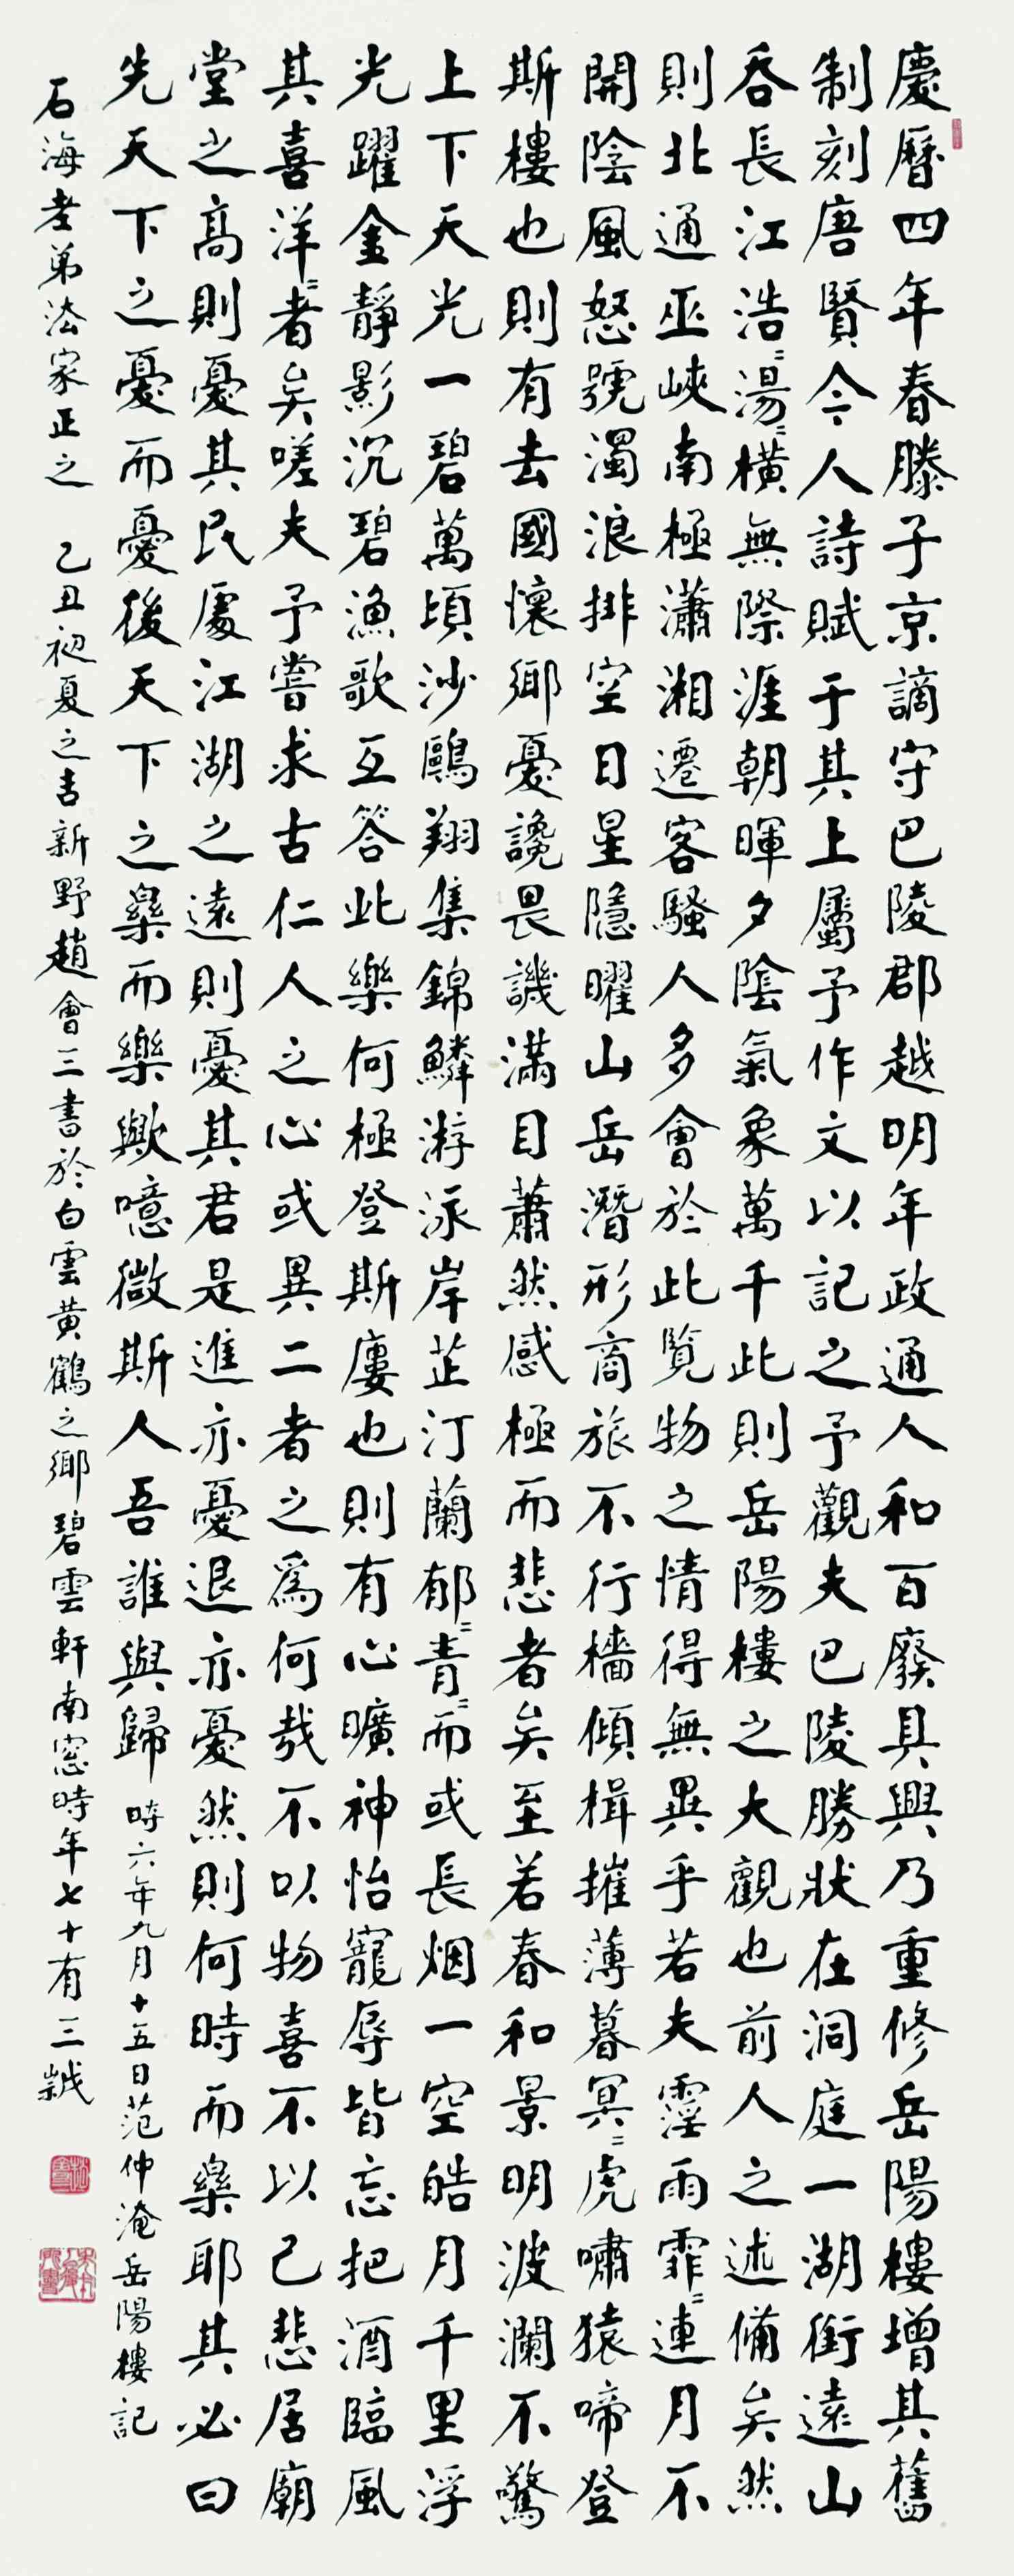 慶曆四年春滕子京謫守巴陵郡越明年政通人和百廢具興乃重修岳陽樓增其舊
制刻唐賢今人詩賦于其上屬予作文以記之予觀夫巴陵勝狀在洞庭一湖銜遠山
吞長江浩〻湯〻橫無際涯朝暉夕陰氣象萬千此則岳陽樓之大觀也前人之述備矣然
則北通巫峽南極瀟湘遷客騷人多會於此覽物之情得無異乎若夫霪雨霏〻連月不
開陰風怒號濁浪排空日星隱曜山岳潛形商旅不行檣傾楫摧薄暮冥〻虎嘯猿啼登
斯樓也則有去國懷鄉憂讒畏譏滿目蕭然感極而悲者矣至若春和景明波瀾不驚
上下天光一碧萬頃沙鷗翔集錦鱗游泳岸芷汀蘭郁〻青〻而或長烟一空皓月千里浮
光躍金靜影沉碧漁歌互答此樂何極登斯廔也則有心曠神怡寵辱皆忘把酒臨風
其喜洋〻者矣嗟夫予嘗求古仁人之心或異二者之為何哉不以物喜不以己悲居廟
堂之高則憂其民處江湖之遠則憂其君是進亦憂退亦憂然則何時而樂耶其必曰
先天下之憂而憂後天下之樂而樂歟噫微斯人吾誰與歸 時六年九月十五日范仲淹岳陽樓記
石海老弟法家正之 乙丑初夏之吉新野趙會三書於白雲黃鶴之鄉碧雲軒南窓時年七十有三